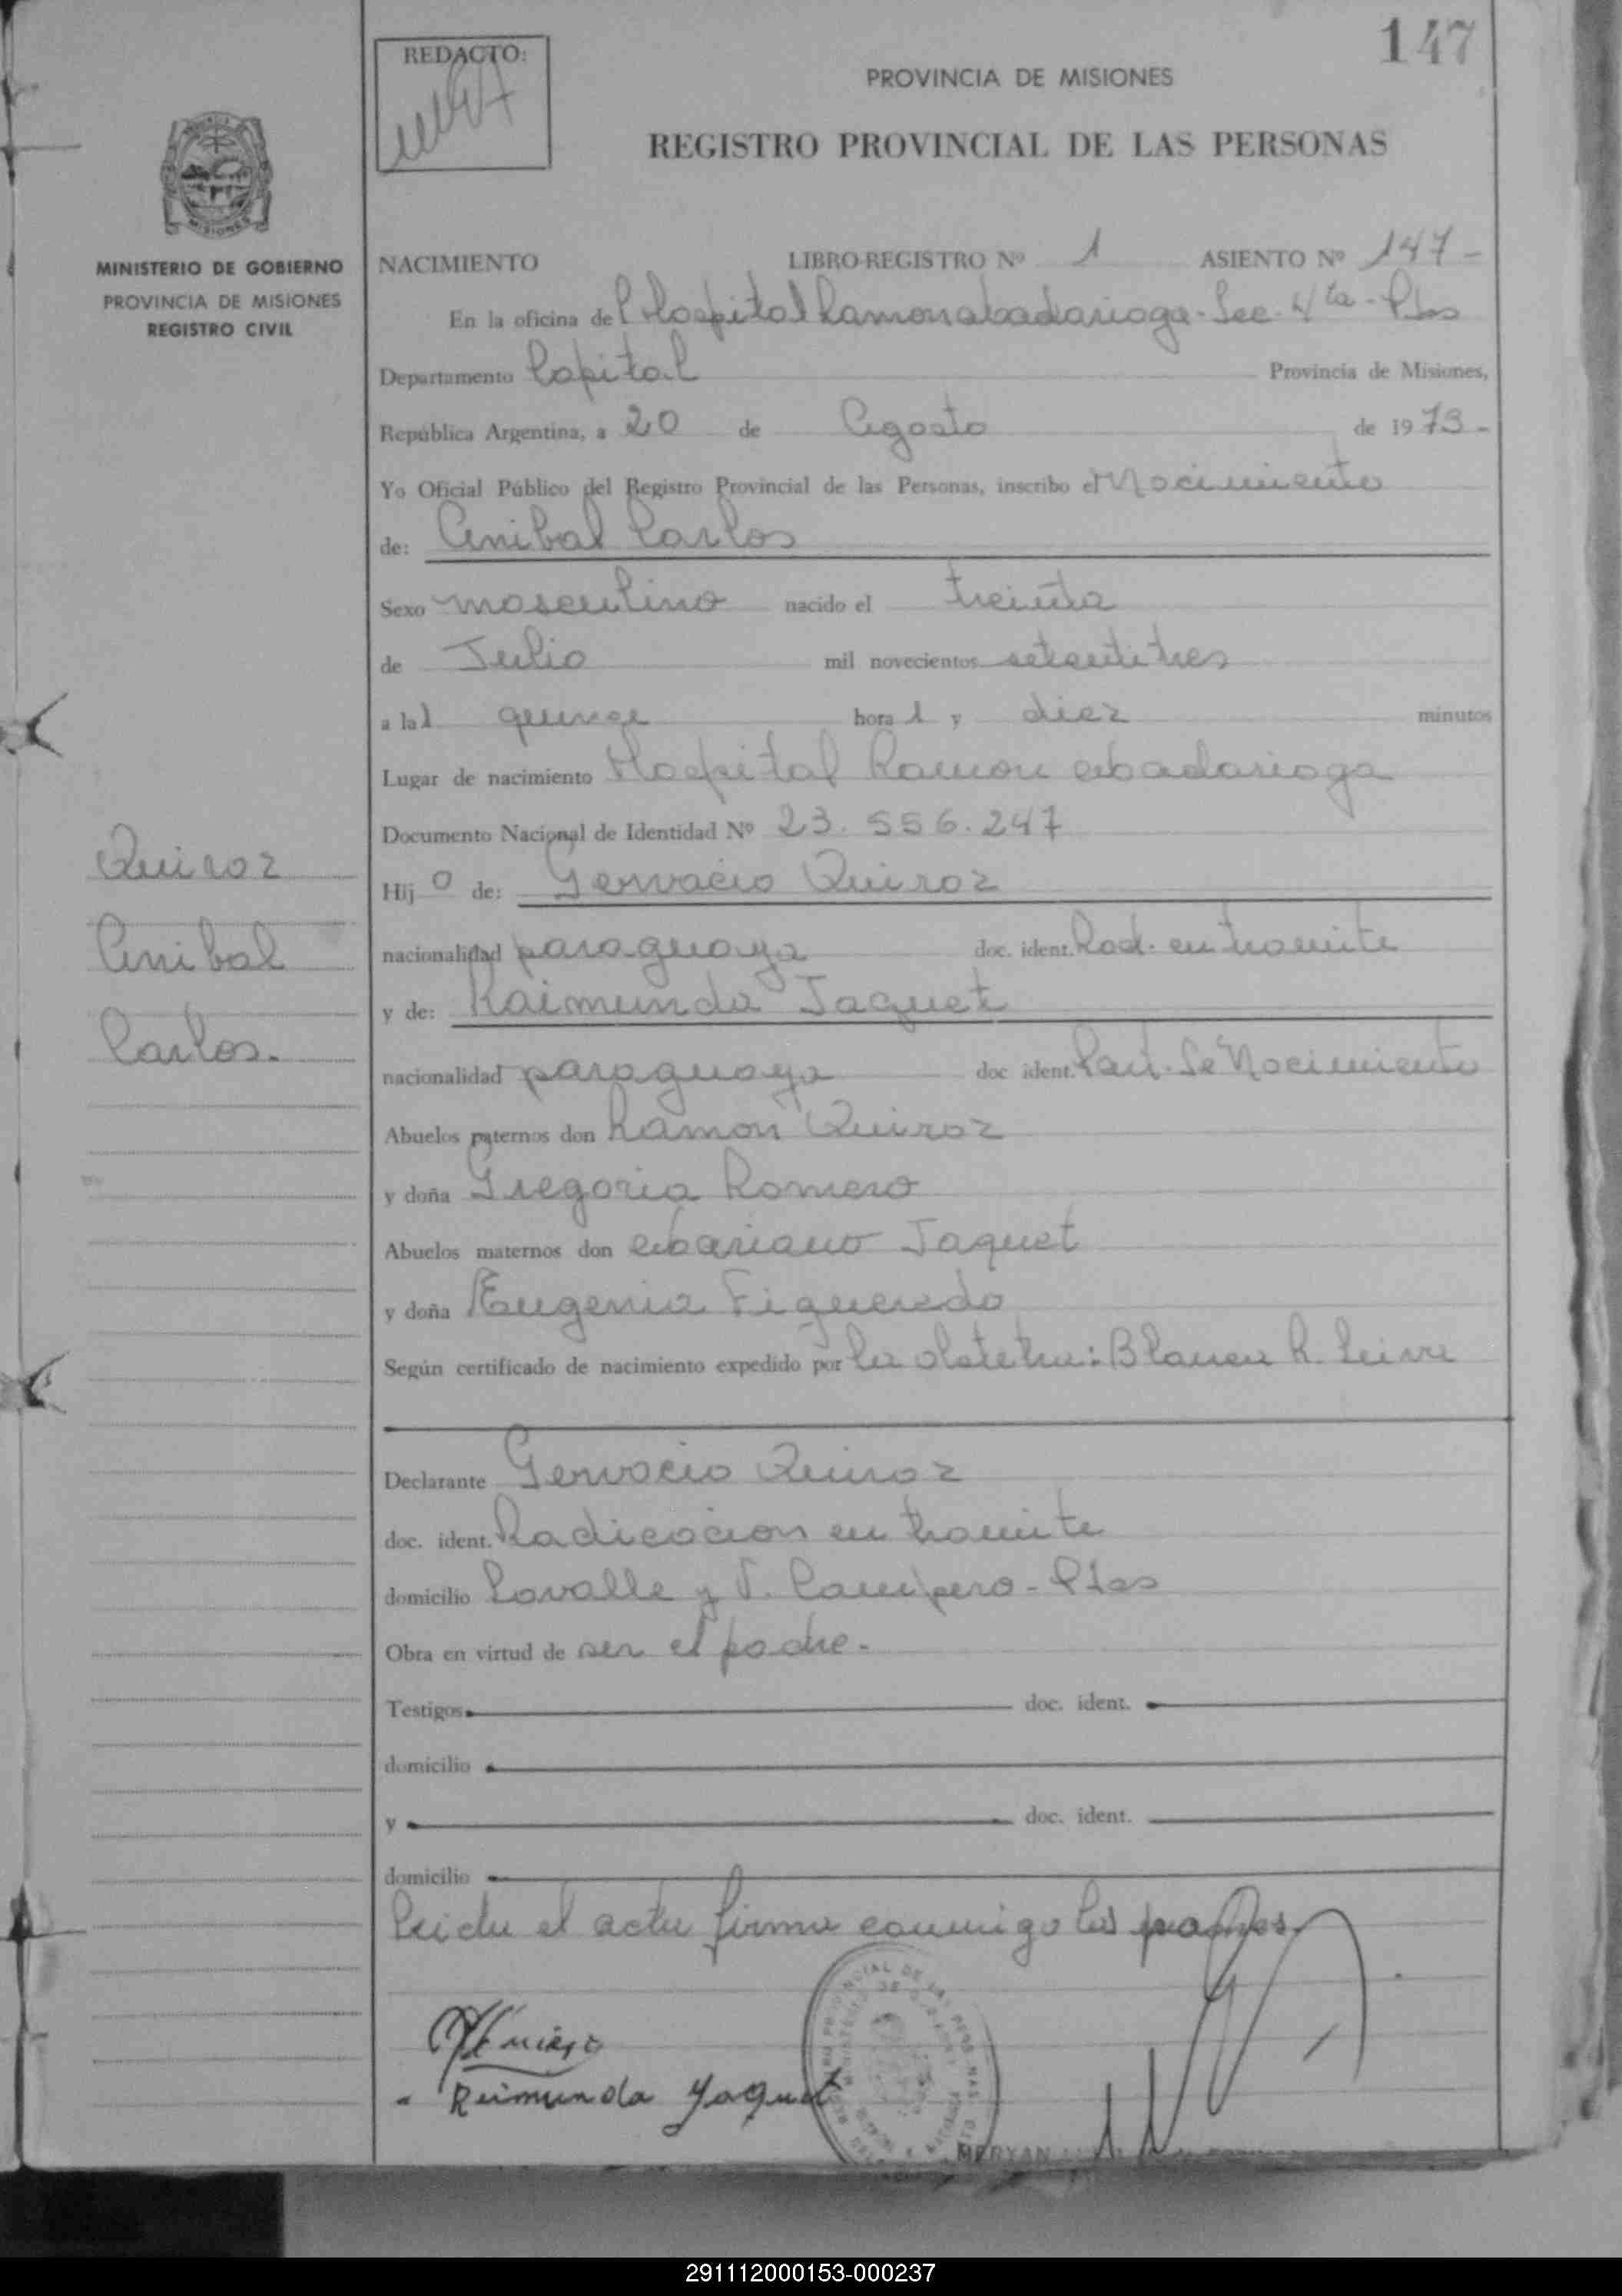 147
REDACTO:
PROVINCIA DE MISIONES
REGISTRO PROVINCIAL DE LAS PERSONAS
MISIONES
MINISTERIO DE GOBIERNO
PROVINCIA DE MISIONES
REGISTRO CIVIL
NACIMIENTO LIBRO-REGISTRO Nº 1 ASIENTO Nº 147-
En la oficina del Hospital Ramon Madariaga. Sec. 4ta - Pdas
Departamento Capital Provincia de Misiones,
República Argentina, a 20 de Agosto de 1973-
Yo Oficial Público del Registro Provincial de las Personas, inscribo el Nacimiento
de: Anibal Carlos
Sexo masculino nacido el treinta
de Julio mil novecientos setentitres
a las quince horas y diez minutos
Lugar de nacimiento Hospital Ramon Madariaga
Documento Nacional de Identidad Nº 23.556.247
Quiroz
Anibal
Carlos.
Hijo de: Gervacio Quiroz
nacionalidad paraguaya doc. ident. Rad. en tramite
y de: Raimunda Jaquet
nacionalidad paraguaya doc ident. Part. de Nacimiento
Abuelos paternos don Ramon Quiroz
y doña Gregoria Romero
Abuelos maternos don Mariano Jaquet
y doña Eugenia Figueredo
Según certificado de nacimiento expedido por la obstetra: Blanca R. Leiva
Declarante Gervacio Quiroz
doc. ident. Radicacion en tramite
domicilio Lavalle y T. Campero - Pdas
Obra en virtud de ser el padre.
Testigos doc. ident.
domicilio
y doc. ident.
domicilio
Leida el acta firma conmigo los padres.
Raimunda Jaquet
291112000153-000237